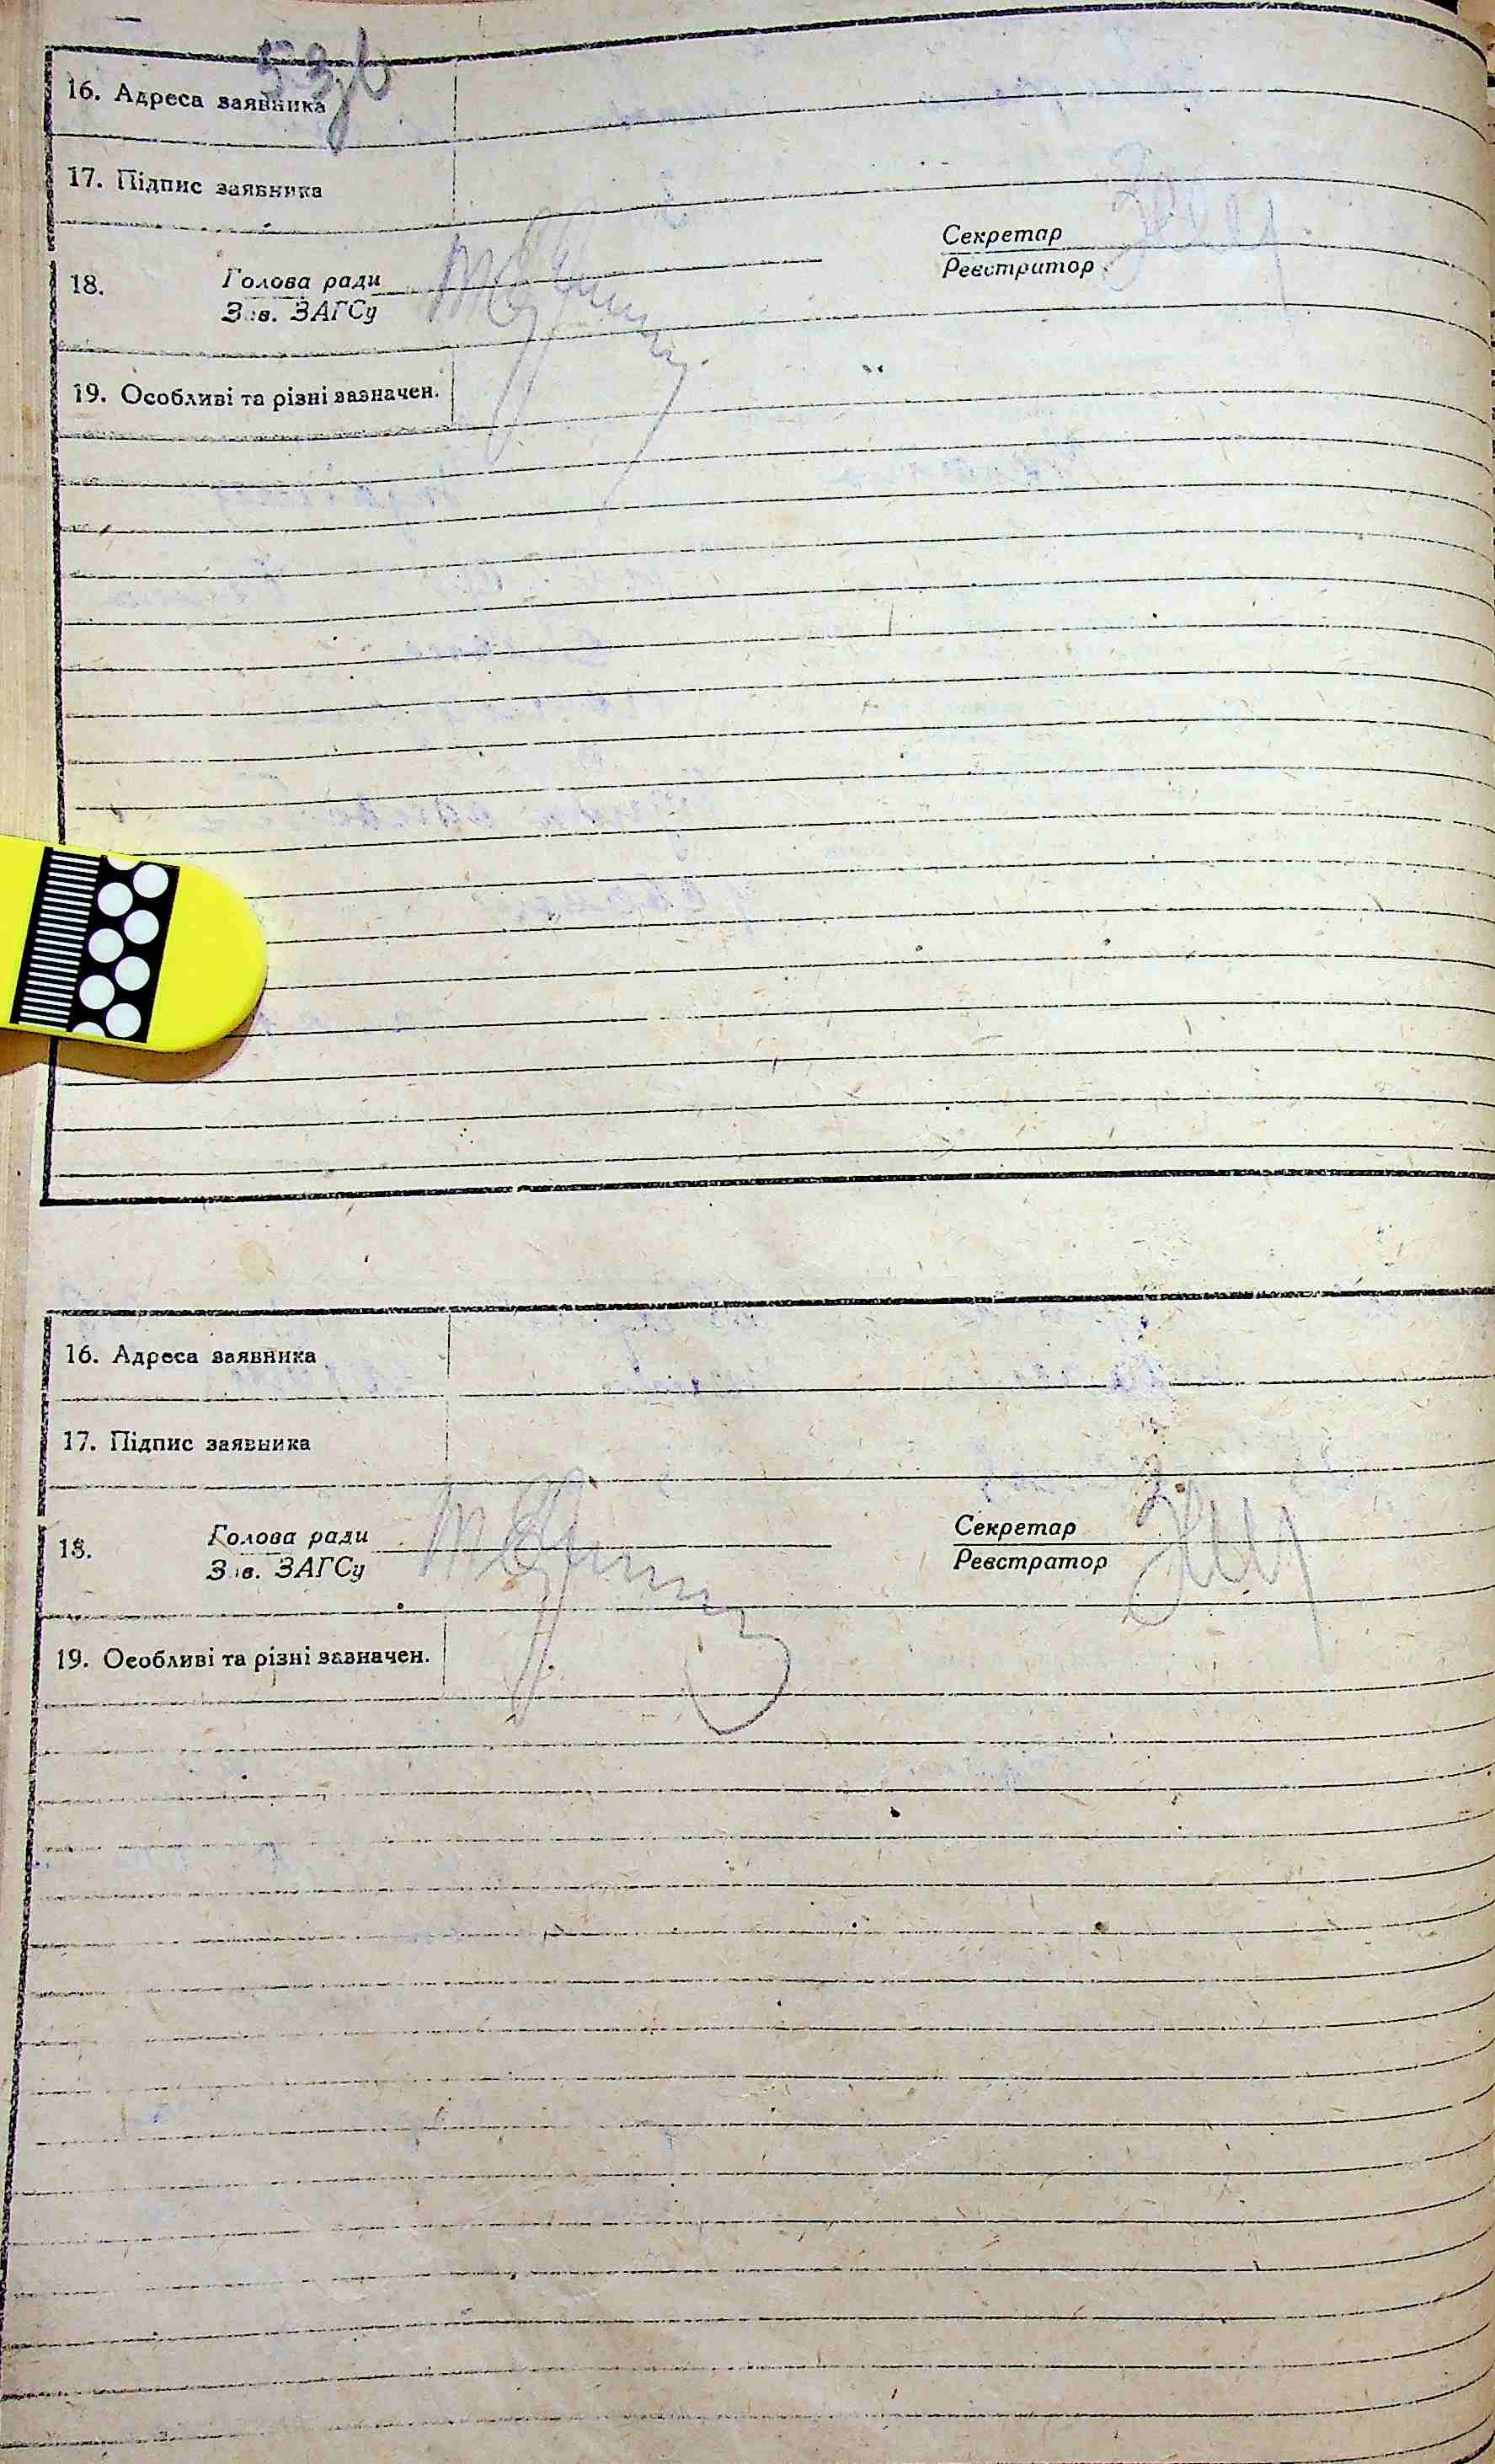 53зв
16. Адреса заявника
17. Підпис заявника
18. Голова ради
Зав. ЗАГСу
Секретар
Реєстратор
19. Особливі та різні зазначен.
16. Адреса заявника
17. Підпис заявника
18. Голова ради
Зав. ЗАГСу
Секретар
Реєстратор
19. Особливі та різні зазначен.